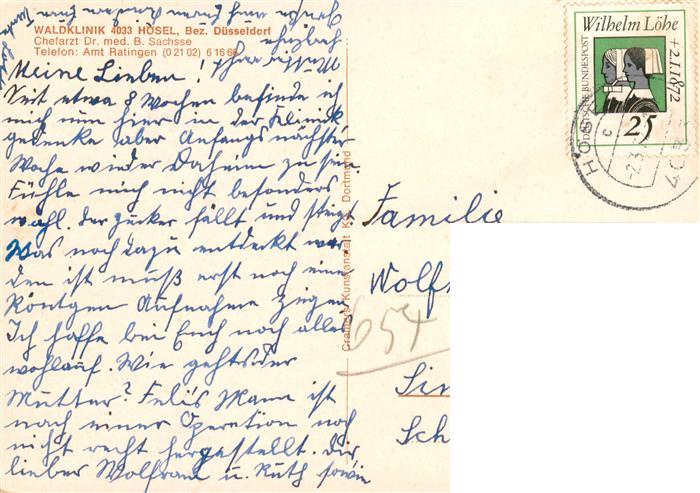 WALDKLINIK 4033 HÖSEL, Bez. Düsseldorf
Chefarzt Dr. med. B. Sachsse
Telefon: Amt Ratingen (0 21 02) 6 16 66
Meine Lieben!
Seit etwa 8 Wochen befinde ich
mich nun hier in der Klinik
gedenke aber Anfangs nächster
Woche wieder Daheim zu sein.
Fühle mich nicht besonders
wohl. Der Zucker fällt und steigt
Was noch dazu entdeckt wor
den ist muß erst noch eine
Röntgen Aufnahme zeigen
Ich hoffe bei Euch noch alles
wohlauf. Wie gehts der
Mutter? Felis Mann ist
nach einer Operation noch
nicht recht hergestellt. Dir
lieber Wolfram u. Ruth sowie
Cramers Kunstanstalt KG, Dortmund
Familie
Wolf
657
Sin
Sch
Wilhelm Löhe
+2.1.1872
DEUTSCHE BUNDESPOST
25
HÖSEL
c
23.
403